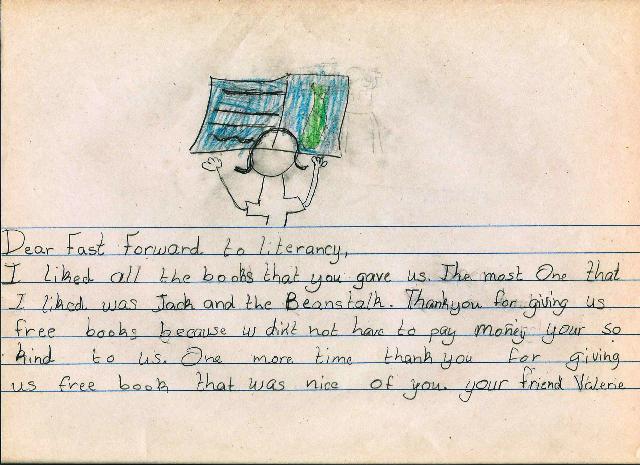 Dear Fast Forward to literancy,
I liked all the books that you gave us. The most One that
I liked was Jack and the Beanstalk. Thankyou for giving us
free books because us didnt not have to pay money your so
kind to us. One more time thank you for giving
us free book that was nice of you. your friend Valerie